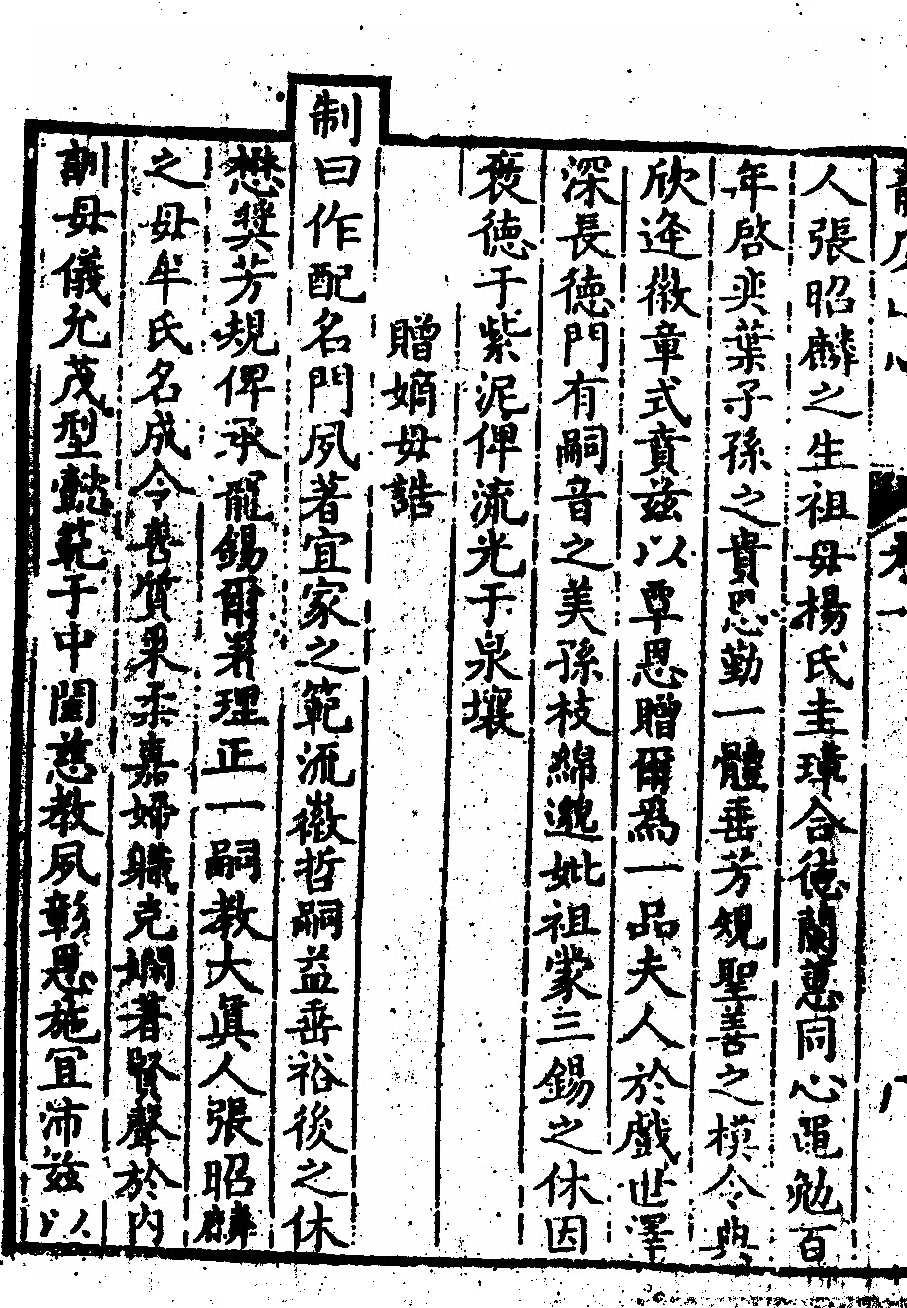 人張昭麟之生祖母楊氏圭璋合德蘭蕙同心黽勉百
年啓奕葉子孫之貴恩勤一體垂芳規聖善之模令典
欣逢徽章式賁兹以覃恩贈爾爲一品夫人於戲世澤
深長德門有嗣音之美孫枝綿邈妣祖蒙三錫之休因
褒德于紫泥俾流光于泉壤
贈嫡母誥
制曰作配名門夙著宜家之範流徽哲嗣益垂裕後之休
懋奬芳規俾承寵錫爾署理正一嗣教大眞人張昭麟
之母牟氏名成令善質秉柔嘉婦職克嫻著賢聲於内
訓母儀允茂型懿範于中闈慈教夙彰恩施宜沛兹以